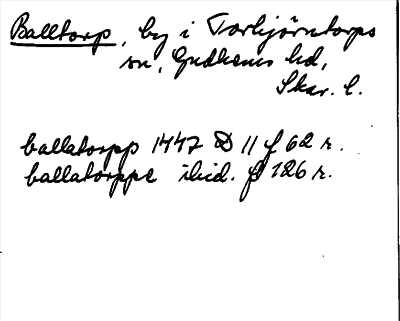 Balltorp, by i Torbjörntorps
sn, Gudhems hd,
Skar. l.
ballatorpp 1447 D 11 f 62 r.
ballatorppe ibid. f 126 r.